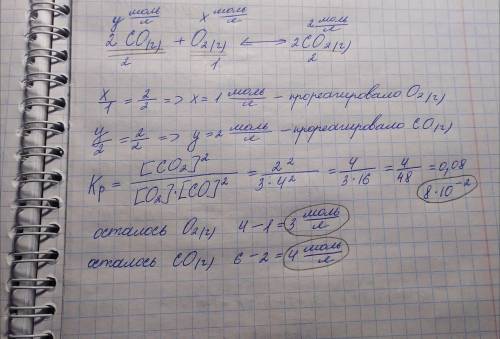 y моль/л x моль/л 2 моль/л
2CO(г) + O2(г) <=> 2CO2(г)
2 1 2
x/1 = 2/2 => x = 1 моль/л - прореагировало O2(г)
y/2 = 2/2 => y = 2 моль/л - прореагировало CO(г)
Kp = [CO2]²/[O2]·[CO]² = 2²/3·4² = 4/3·16 = 4/48 = 0,08
8·10⁻²
осталось O2(г) 4-1 = 3 моль/л
осталось CO(г) 6-2 = 4 моль/л